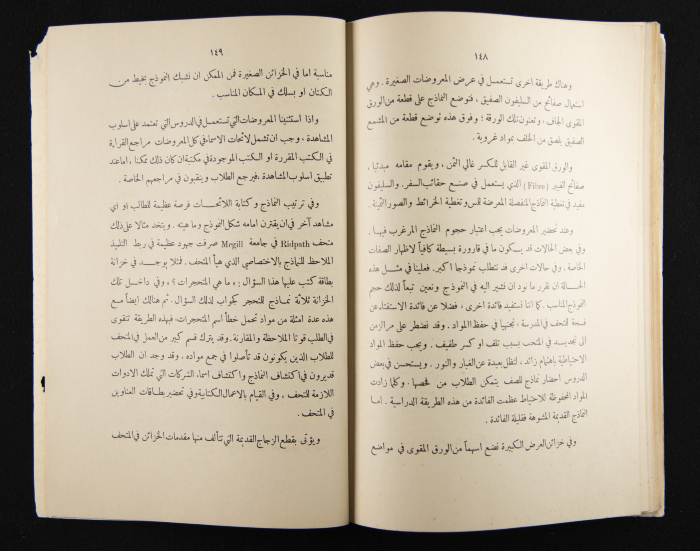 ١٤٨
وهناك طريقة اخرى تستعمل في عرض المعروضات الصغيرة . وهي
استعمال صفائح من السليفون الصفيق ، فتوضع النماذج على قطعة من الورق
المقوى الجاف ، وتعنون تلك الورقة ؛ وفوق هذه توضع قطعة من المشمع
الصفيق يلصق من الخلف بمواد غروية .
والورق المقوى غير القابل للكسر غالي الثمن ، ويقوم مقامه مبدئيا
صفائح الفيبر (Fibre) الذي يستعمل في صنع حقائب السفر . والسليفون
مفيد في تغطية النماذج المنفصلة المعرضة للمس وتغطية الخرائط والصور الثمينة .
وعند تحضير المعروضات يجب اعتبار حجوم النماذج المرغوب فيها .
وفي بعض الحالات قد يكون ما في قارورة بسيطة كافياً لاظهار الصفات
الخاصة . وفي حالات اخرى قد تتطلب نموذجا اكبر . فعلينا في مثل هذه
الحالة ان نقرر ما نود ان نشير اليه في النموذج ونعين تبعاً لذلك حجم
النموذج المناسب . كما اننا نستفيد فائدة اخرى ، فضلا عن فائدة الاستفتاء عن
فسحة المتحف في المدرسة ، نجنيها في حفظ المواد . وقد نضطر على مر الزمن
الى تجديد في المتحف بسبب تلف او كسر طفيف . ويجب حفظ المواد
الاحتياطية باهتمام زائد ، لتظل بعيدة عن الغبار والنور . ويستحسن في بعض
الدروس احضار نماذج للصف يتمكن الطلاب من فحصها . وكلما زادت
المواد المحفوظة للاحتياط عظمت الفائدة من هذه الطريقة الدراسية . اما
النماذج القديمة المشوهة فقليلة الفائدة .
وفي خزائن العرض الكبيرة نضع اسهماً من الورق المقوى في مواضع
١٤٩
مناسبة اما في الخزائن الصغيرة فمن الممكن ان نشبك النموذج بخيط من
الكتان او بسلك في المكان المناسب .
واذا استثنينا المعروضات التي تستعمل في الدروس التي تعتمد على اسلوب
المشاهدة ، وجب ان تشمل لائحات الاسماء في كل المعروضات مراجع القراءة
في الكتب المقررة او الكتب الموجودة في مكتبة ان كان ذلك ممكنا ، اما عند
تطبيق اسلوب المشاهدة ، فيرجع الطلاب وينقبون في مراجعهم الخاصة .
وفي ترتيب النماذج وكتابة اللائحات فرصة عظيمة للطالب او اي
مشاهد آخر في ان يقترن امامه شكل النموذج وماهيته . ويتخذ مثالا على ذلك
متحف Ridpath في جامعة Mcgill صرفت جهود عظيمة في ربط التلميذ
الملاحظ للنماذج بالاختصاصي الذي هيأ المتحف . فمثلا يوجد في خزانة
بطاقة كتب عليها هذا السؤال : « ما هي المتحجرات ؟ » ، وفي داخل تلك
الخزانة ثلاثة نماذج للتحجر كجواب لذلك السؤال . ثم هنالك ايضاً مع
هذه عدة امثلة من مواد تحمل خطأ اسم المتحجرات ، فبهذه الطريقة تتقوى
في الطلب قوتا الملاحظة والمقارنة . وقد يترك قسم كبير من العمل في المتحف
للطلاب الذين يكونون قد تأصلوا في جمع مواده . وقد وجد ان الطلاب
قديرون في اكتشاف النماذج واكتشاف اسماء الشركات التي تملك الادوات
اللازمة للمتحف ، وفي القيام بالاعمال الكتابية وفي تحضير بطاقات العناوين
في المتحف .
ويؤتى بقطع الزجاج القديمة التي تتألف منها مقدمات الخزائن في المتحف